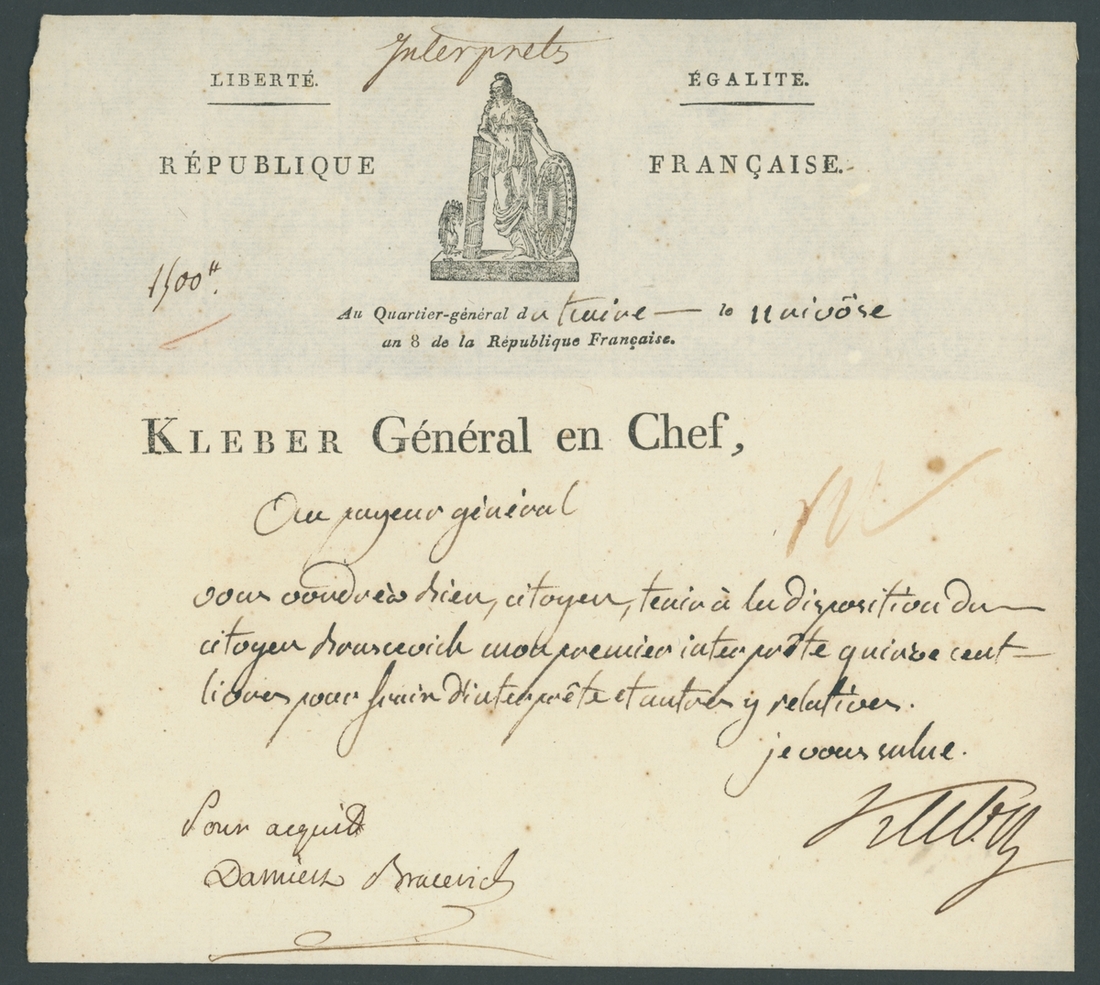 Interprets
LIBERTÉ. ÉGALITE.
RÉPUBLIQUE FRANÇAISE.
1500₶.
Au Quartier-général du Kaire — le 11 nivôse
an 8 de la République Française.
KLEBER Général en Chef,
Au payeur général
vous voudrèz bien, citoyen, tenir à la disposition du
citoyen Bracevich mon premier interprête quinze cent
livres pour frais d'interprête et autres y relatives.
je vous salue.
Kleber
Pour acquit
Damien Bracevich